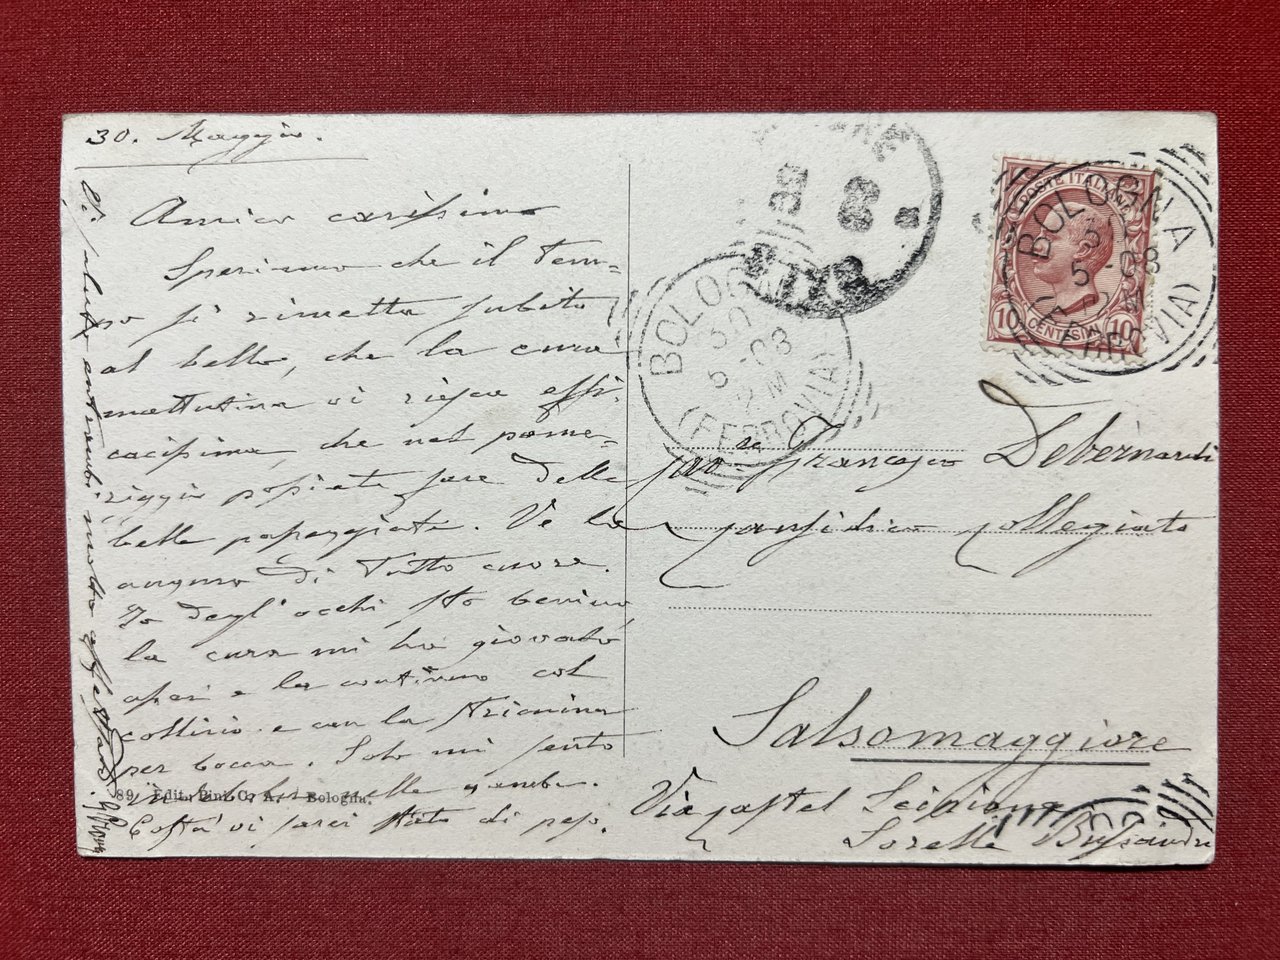 30. Maggio.
Amico carissimo
Speriamo che il tem=
po si rimetta subito
al bello, che la cura
mattutina vi riesca effi=
cacissima, che nel pome=
riggio possiate fare delle
belle passeggiate. Ve lo
auguro di tutto cuore.
Io degl'occhi sto benino,
la cura mi ha giovato
assai e la continuo col
collirio e con la Stricnina
per bocca. Solo mi sento
nelle gambe.
Costà vi sarei stato di peso.
Vi saluta entrambi molto
89 Edit. Bologna.
POSTE ITALIANE
10 CENTESIMI 10
BOLOGNA
5 - 08
(FERROVIA)
BOLOGNA
30
5 - 08
2 M
(FERROVIA)
Francesco Debernardi
Collegiato
Salsomaggiore
Via Castel Scipione
Sorelle